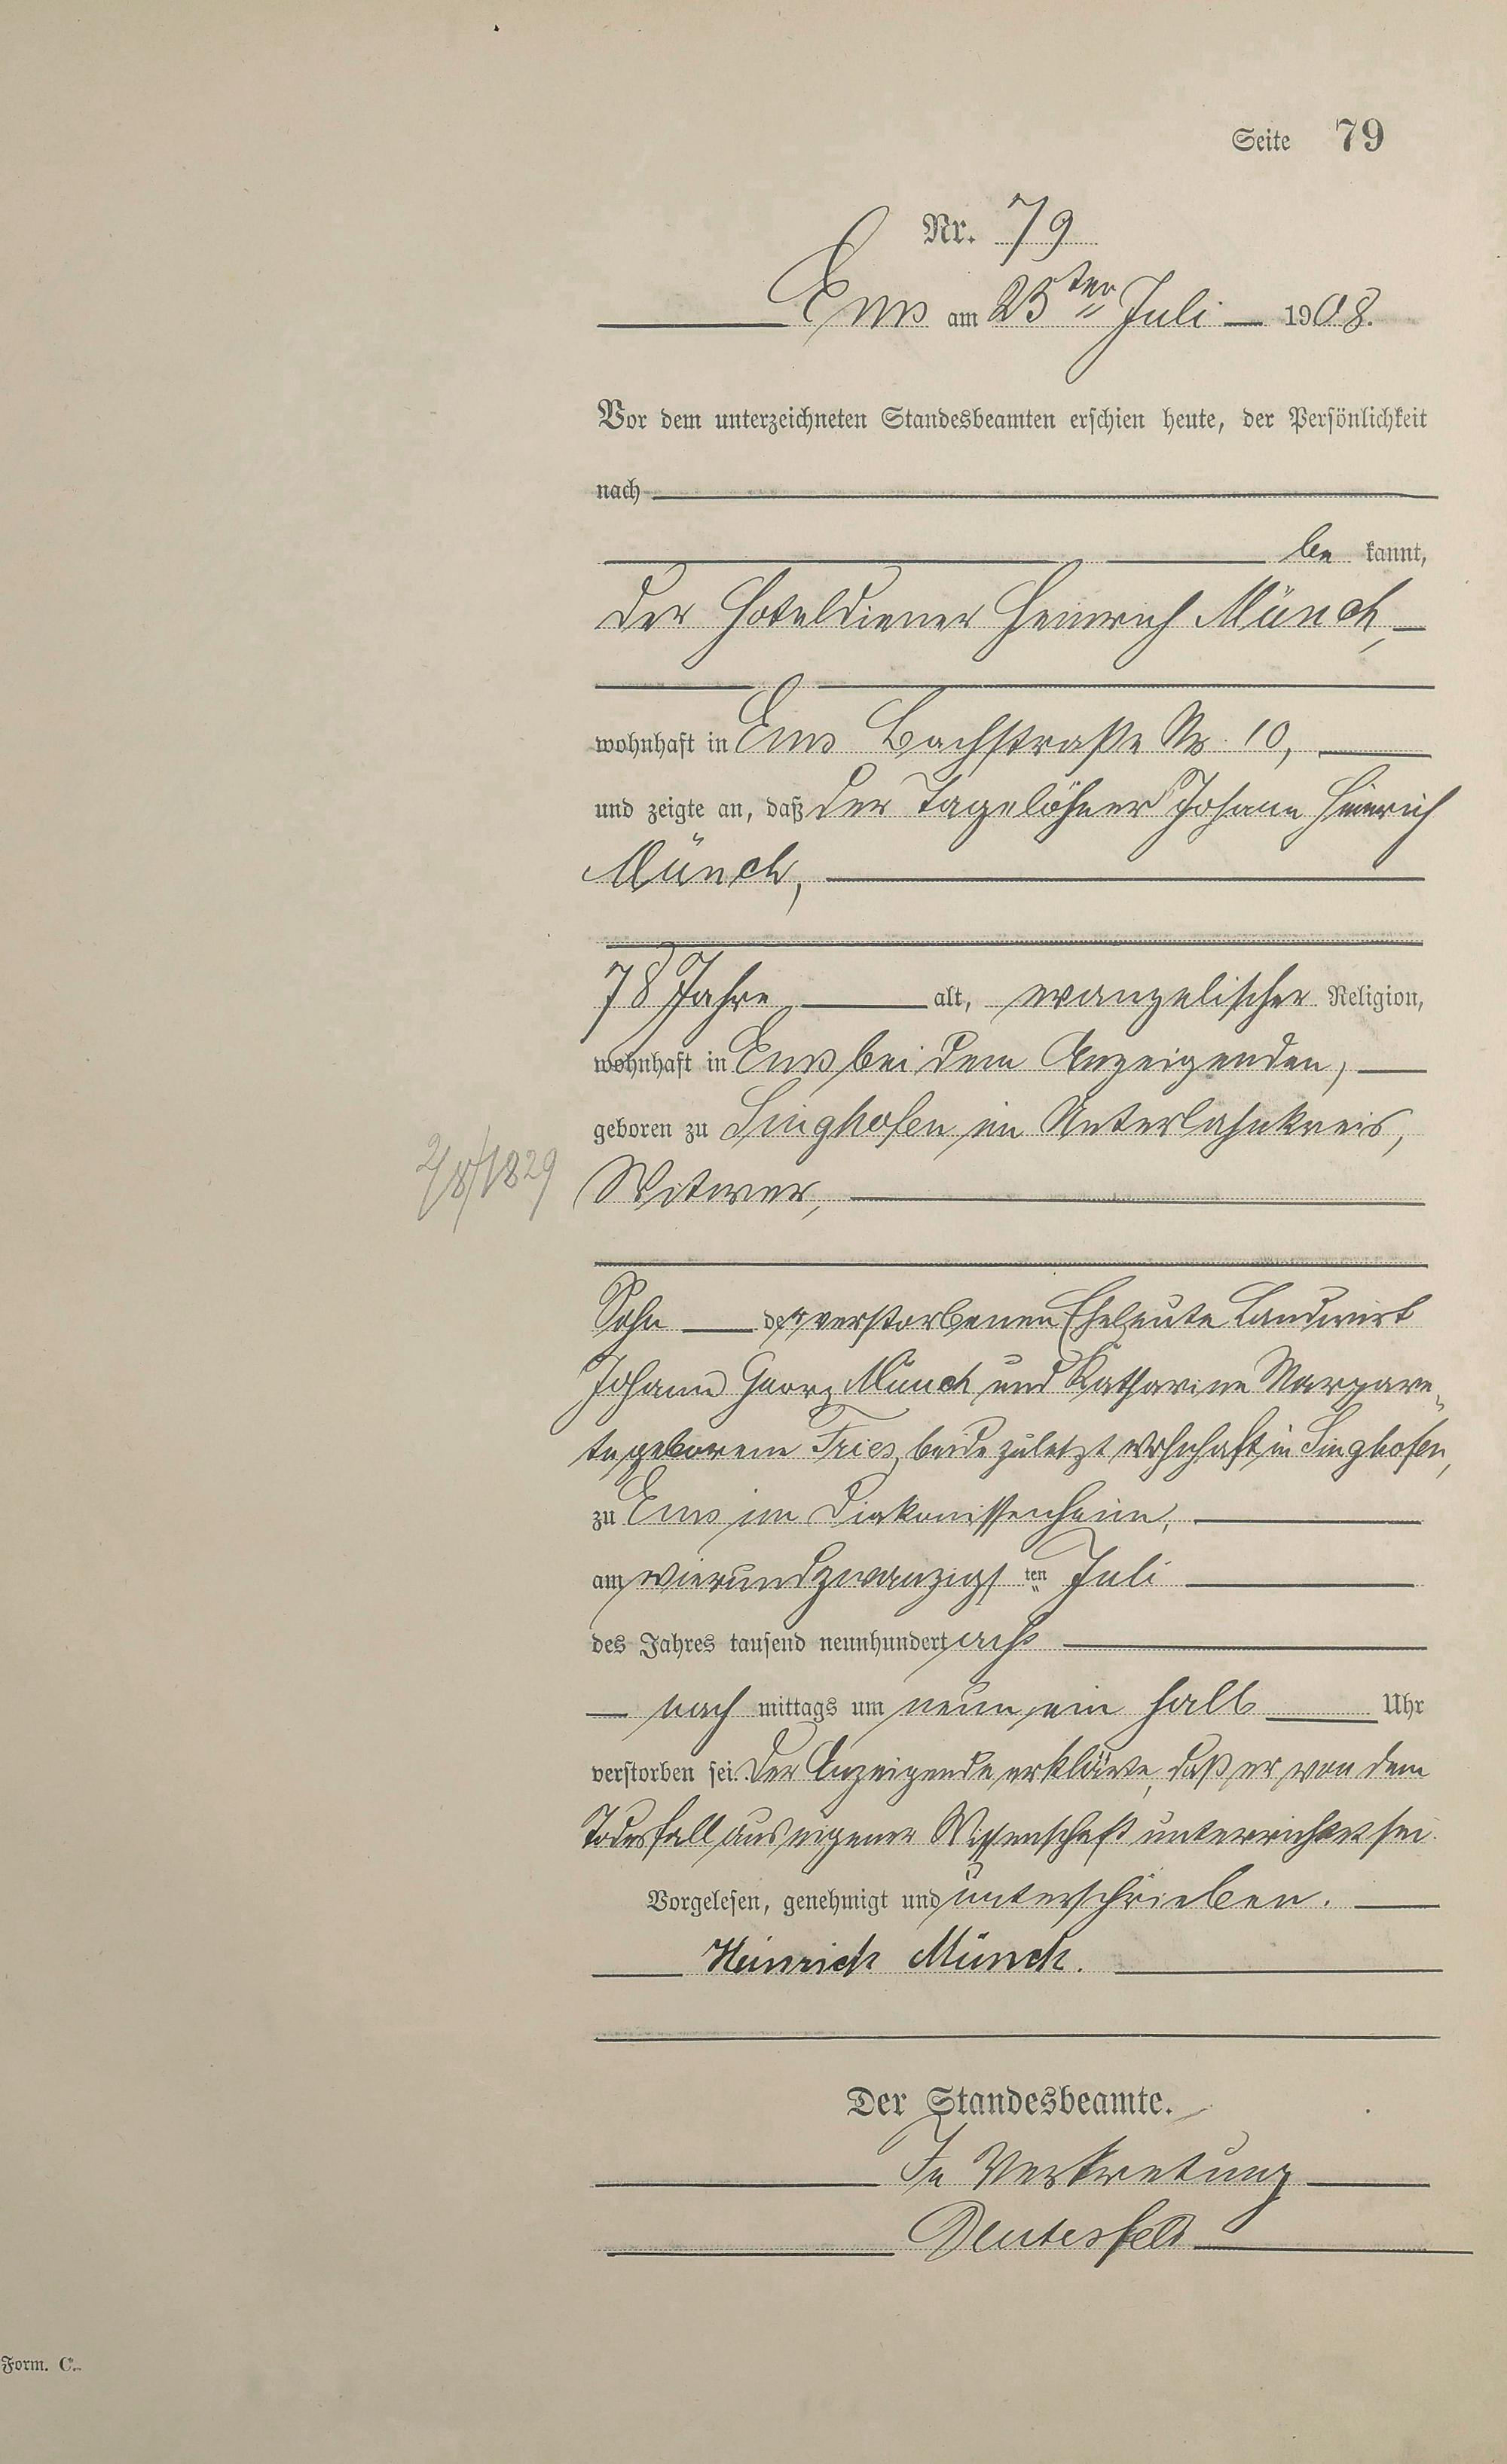 Seite 79
Nr. 79
Ems am 25ten Juli 1908.
Vor dem unterzeichneten Standesbeamten erschien heute, der Persönlichkeit
nach
be kannt,
der Hoteldiener Heinrich Münch,
wohnhaft in Ems Bachstraße Nr. 10,
und zeigte an, daß der Tagelöhner Johann Heinrich
Münch,
78 Jahre alt, evangelischer Religion,
wohnhaft in Ems bei dem Anzeigenden,
geboren zu Singhofen im Unterlahnkreis,
2/8/1829
Witwer,
Sohn der verstorbenen Eheleute Landwirt
Johann Georg Münch und Katharine Margare-
te geborene Fries, beide zuletzt wohnhaft in Singhofen,
zu Ems im Diakonissenheim,
am vierundzwanzigsten Juli
des Jahres tausend neunhundert acht
nach mittags um neun ein halb Uhr
verstorben sei. Der Anzeigende erklärte, daß er von dem
Todesfall aus eigener Wissenschaft unterrichtet sei.
Vorgelesen, genehmigt und unterschrieben.
Heinrich Münch.
Der Standesbeamte.
In Vertretung
Form. C.